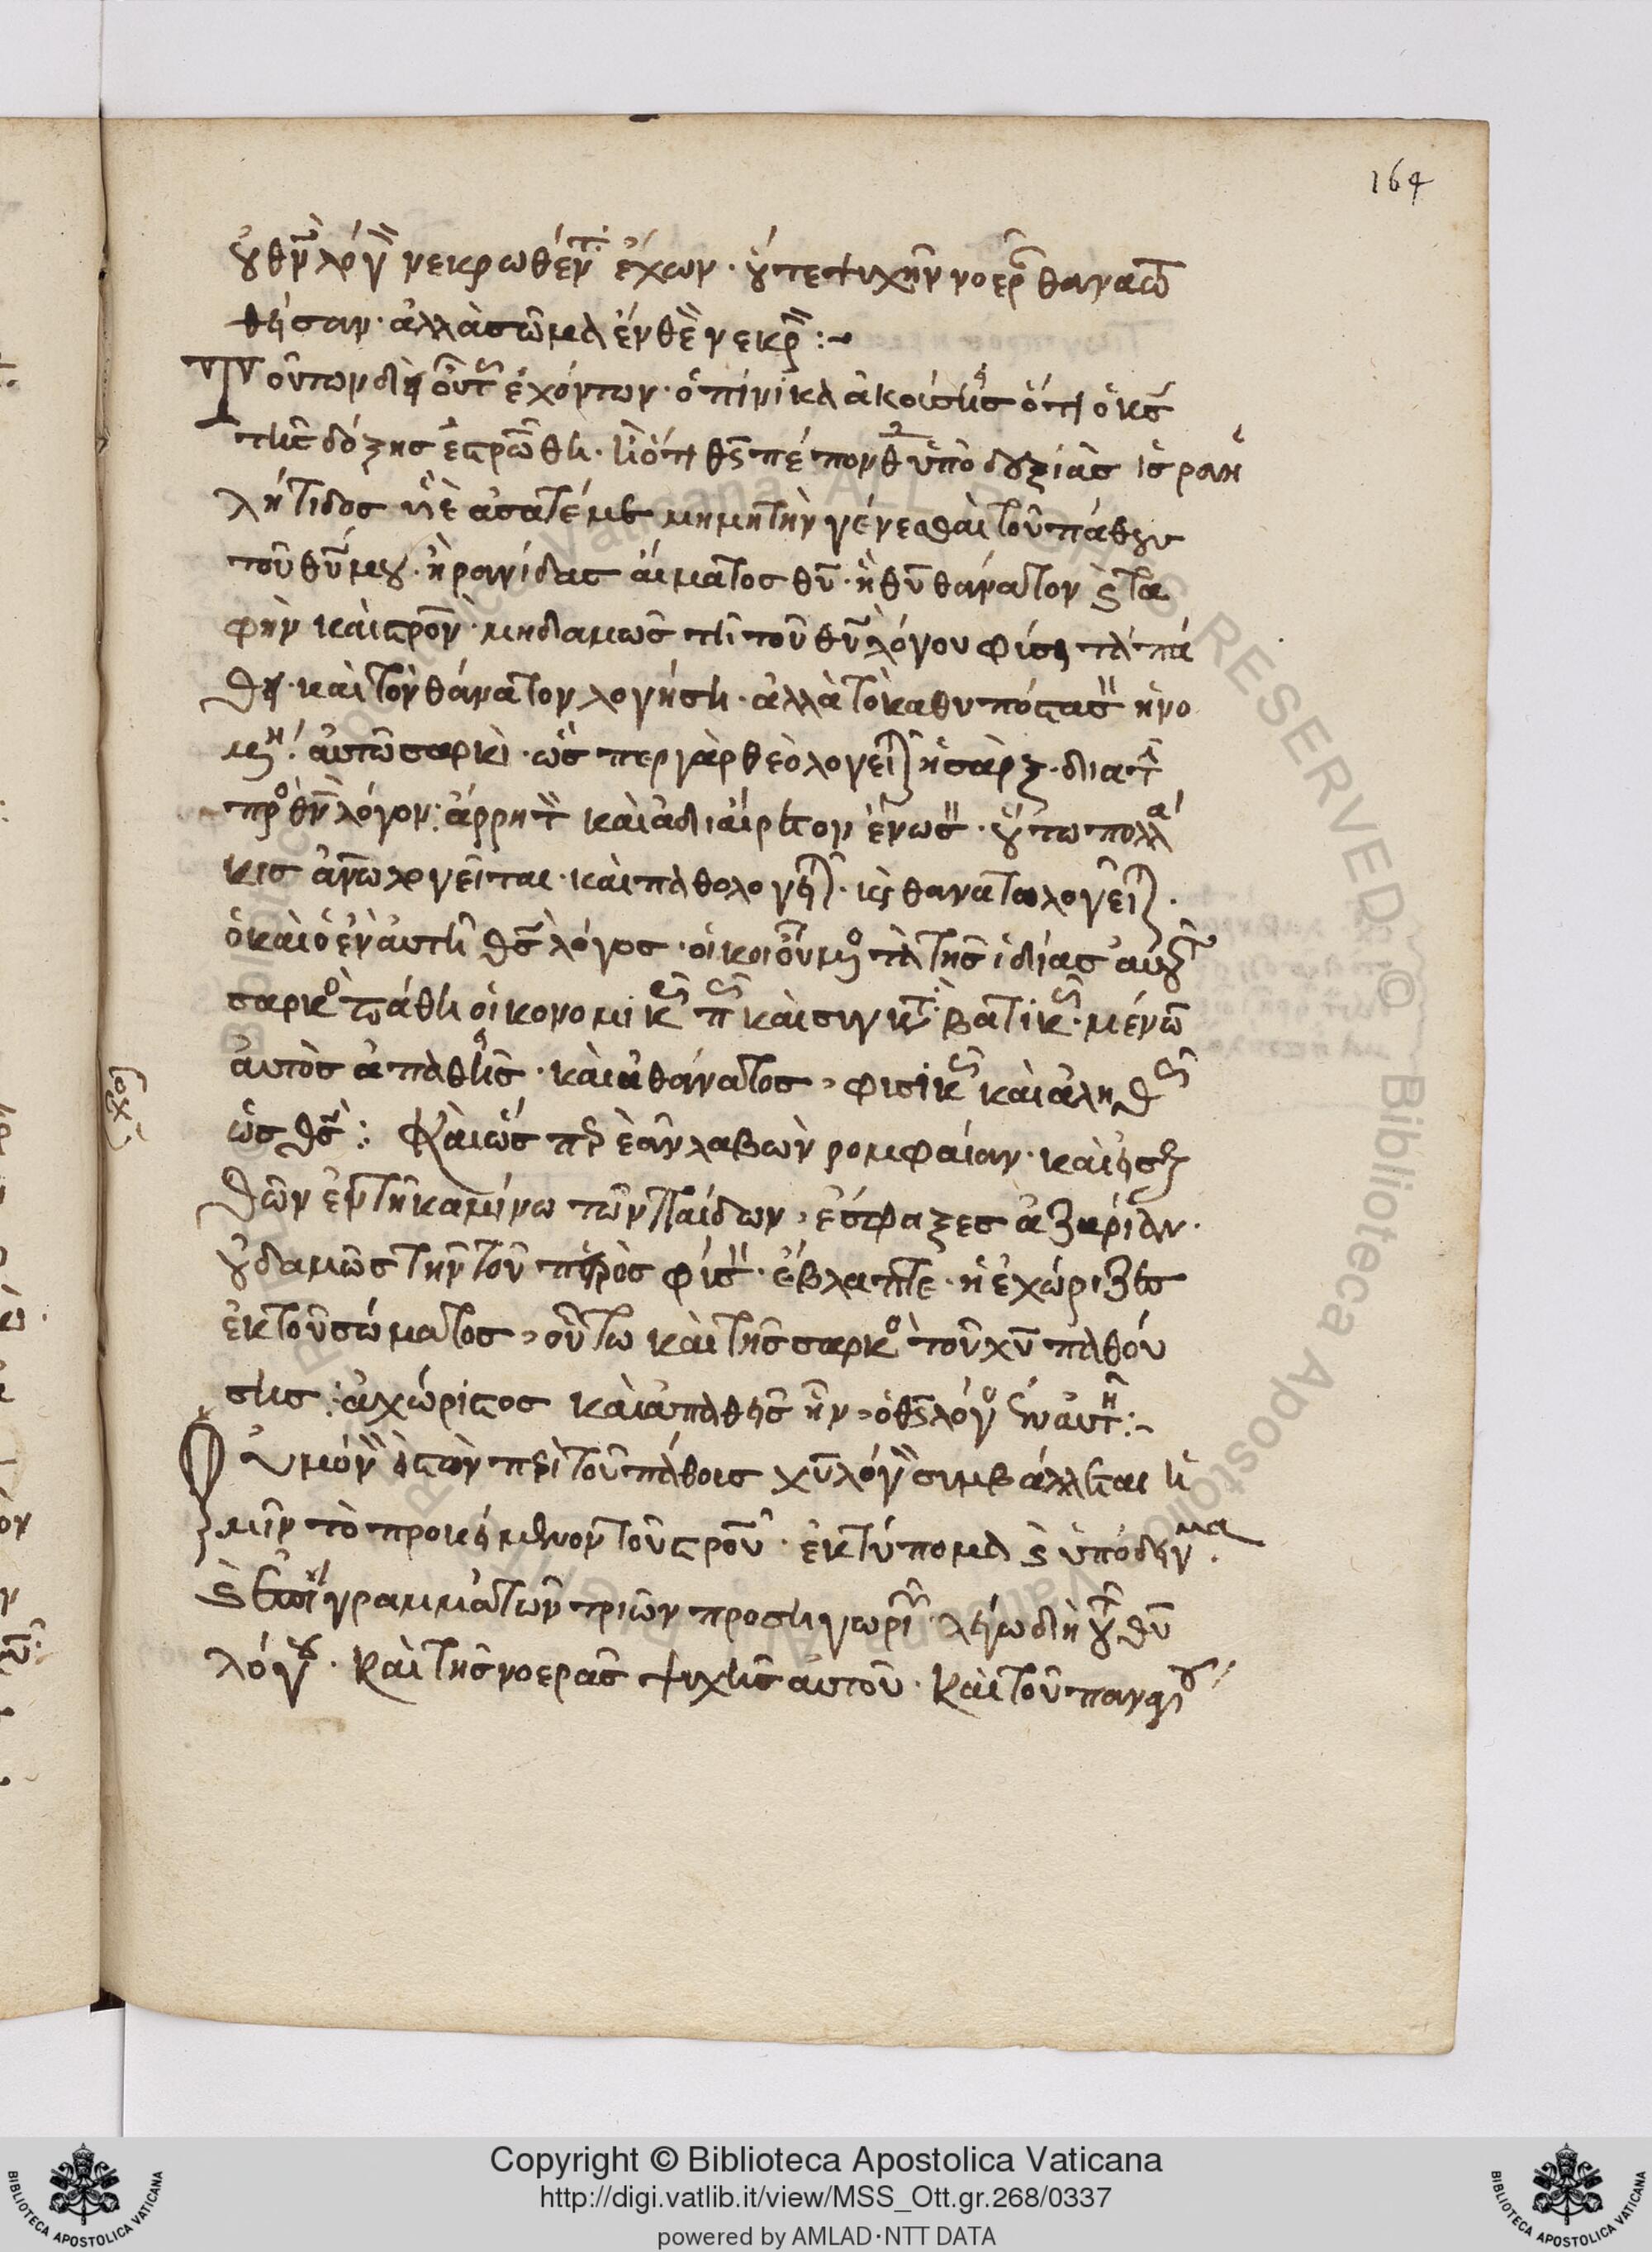 164
οὐ θν λόγον νεκρωθέντα ἔχων· οὔτε ψυχὴν νοερὰν θανατω
θήσαν· ἀλλὰ σῶμα ἔνθεον νεκρὸν :~
Τούτων δὴ οὕτως ἐχόντων· ὁπινίκα ἀκούσης ὅτι ὁ κς
τῆς δόξης ἐσταυρώθη· ἢ ὅτι θς πέπονθεν ὑπὸ δεξιᾶς ἰσραη
λήτιδος μιμητὴν γένεσθαι τοῦ πάθους
τοῦ θυ μου· ἢ ρανίδας αἵματος θυ· ἢ θυ θάνατον καὶ τα
φὴν καὶ σταυρὸν· μηδαμῶς τῆ τοῦ θυ λόγου φύσει τὰ πά
θη· καὶ τὸν θάνατον λογήση· ἀλλὰ τὸ καθυπόστασιν ἡνο
μένη αὐτῶ σαρκὶ· ὥσπερ γὰρ θεολογεῖται ἡ σὰρξ· διὰ τὴν
πρὸς θν λόγον· ἄρρητον καὶ ἀδιαίρετον ἕνωσιν· οὕτω πολλά
κις ἀνθωλογεῖται· καὶ παθολογεῖται· καὶ θανατολογεῖται·
ὁ καὶ ὁ ἐν αὐτῆ θς λόγος· οἰκοιούμενος τὰ τῆς ἰδίας αὐτοῦ
σαρκὸς πάθη οἰκονομικῶς πως καὶ συγκαταβατικῶς· μένων
αὐτὸς ἀπαθὴς· καὶ ἀθάνατος, φυσικῶς καὶ ἀληθῶς
ὡς θς : Καὶ ὥσπερ ἐὰν λαβὼν ρομφαίαν· καὶ εἰσελ
θὼν ἐν τῆ καμίνω τῶν παίδων, ἔσφαξες ἀζαρίαν·
οὐδαμῶς τὴν τοῦ πυρὸς φύσιν· ἔβλαπτε· ἢ ἐχώριζες
ἐκ τοῦ σώματος, οὕτω καὶ τῆς σαρκὸς τοῦ χυ παθού
σης· ἀχώριστος καὶ ἀπαθὴς ἦν, ὁ θς λόγος ἐν αὐτῆ :~
Οὐ μόνον δὲ τὸν περὶ τοῦ πάθους χυ λόγον συμβάλλεται ἡ
μῖν τὸ προκείμενον τοῦ σταυροῦ· ἐκτύπομα καὶ ὑπόδηγμα·
γραμμάτων τριῶν προσηγωρία· λέγω δὴ τοῦ θυ
λόγου· καὶ τῆς νοερᾶς ψυχῆς αὐτοῦ· καὶ τοῦ παναγίου
Copyright © Biblioteca Apostolica Vaticana
http://digi.vatlib.it/view/MSS_Ott.gr.268/0337
powered by AMLAD·NTT DATA
BIBLIOTECA APOSTOLICA VATICANA
BIBLIOTECA APOSTOLICA VATICANA